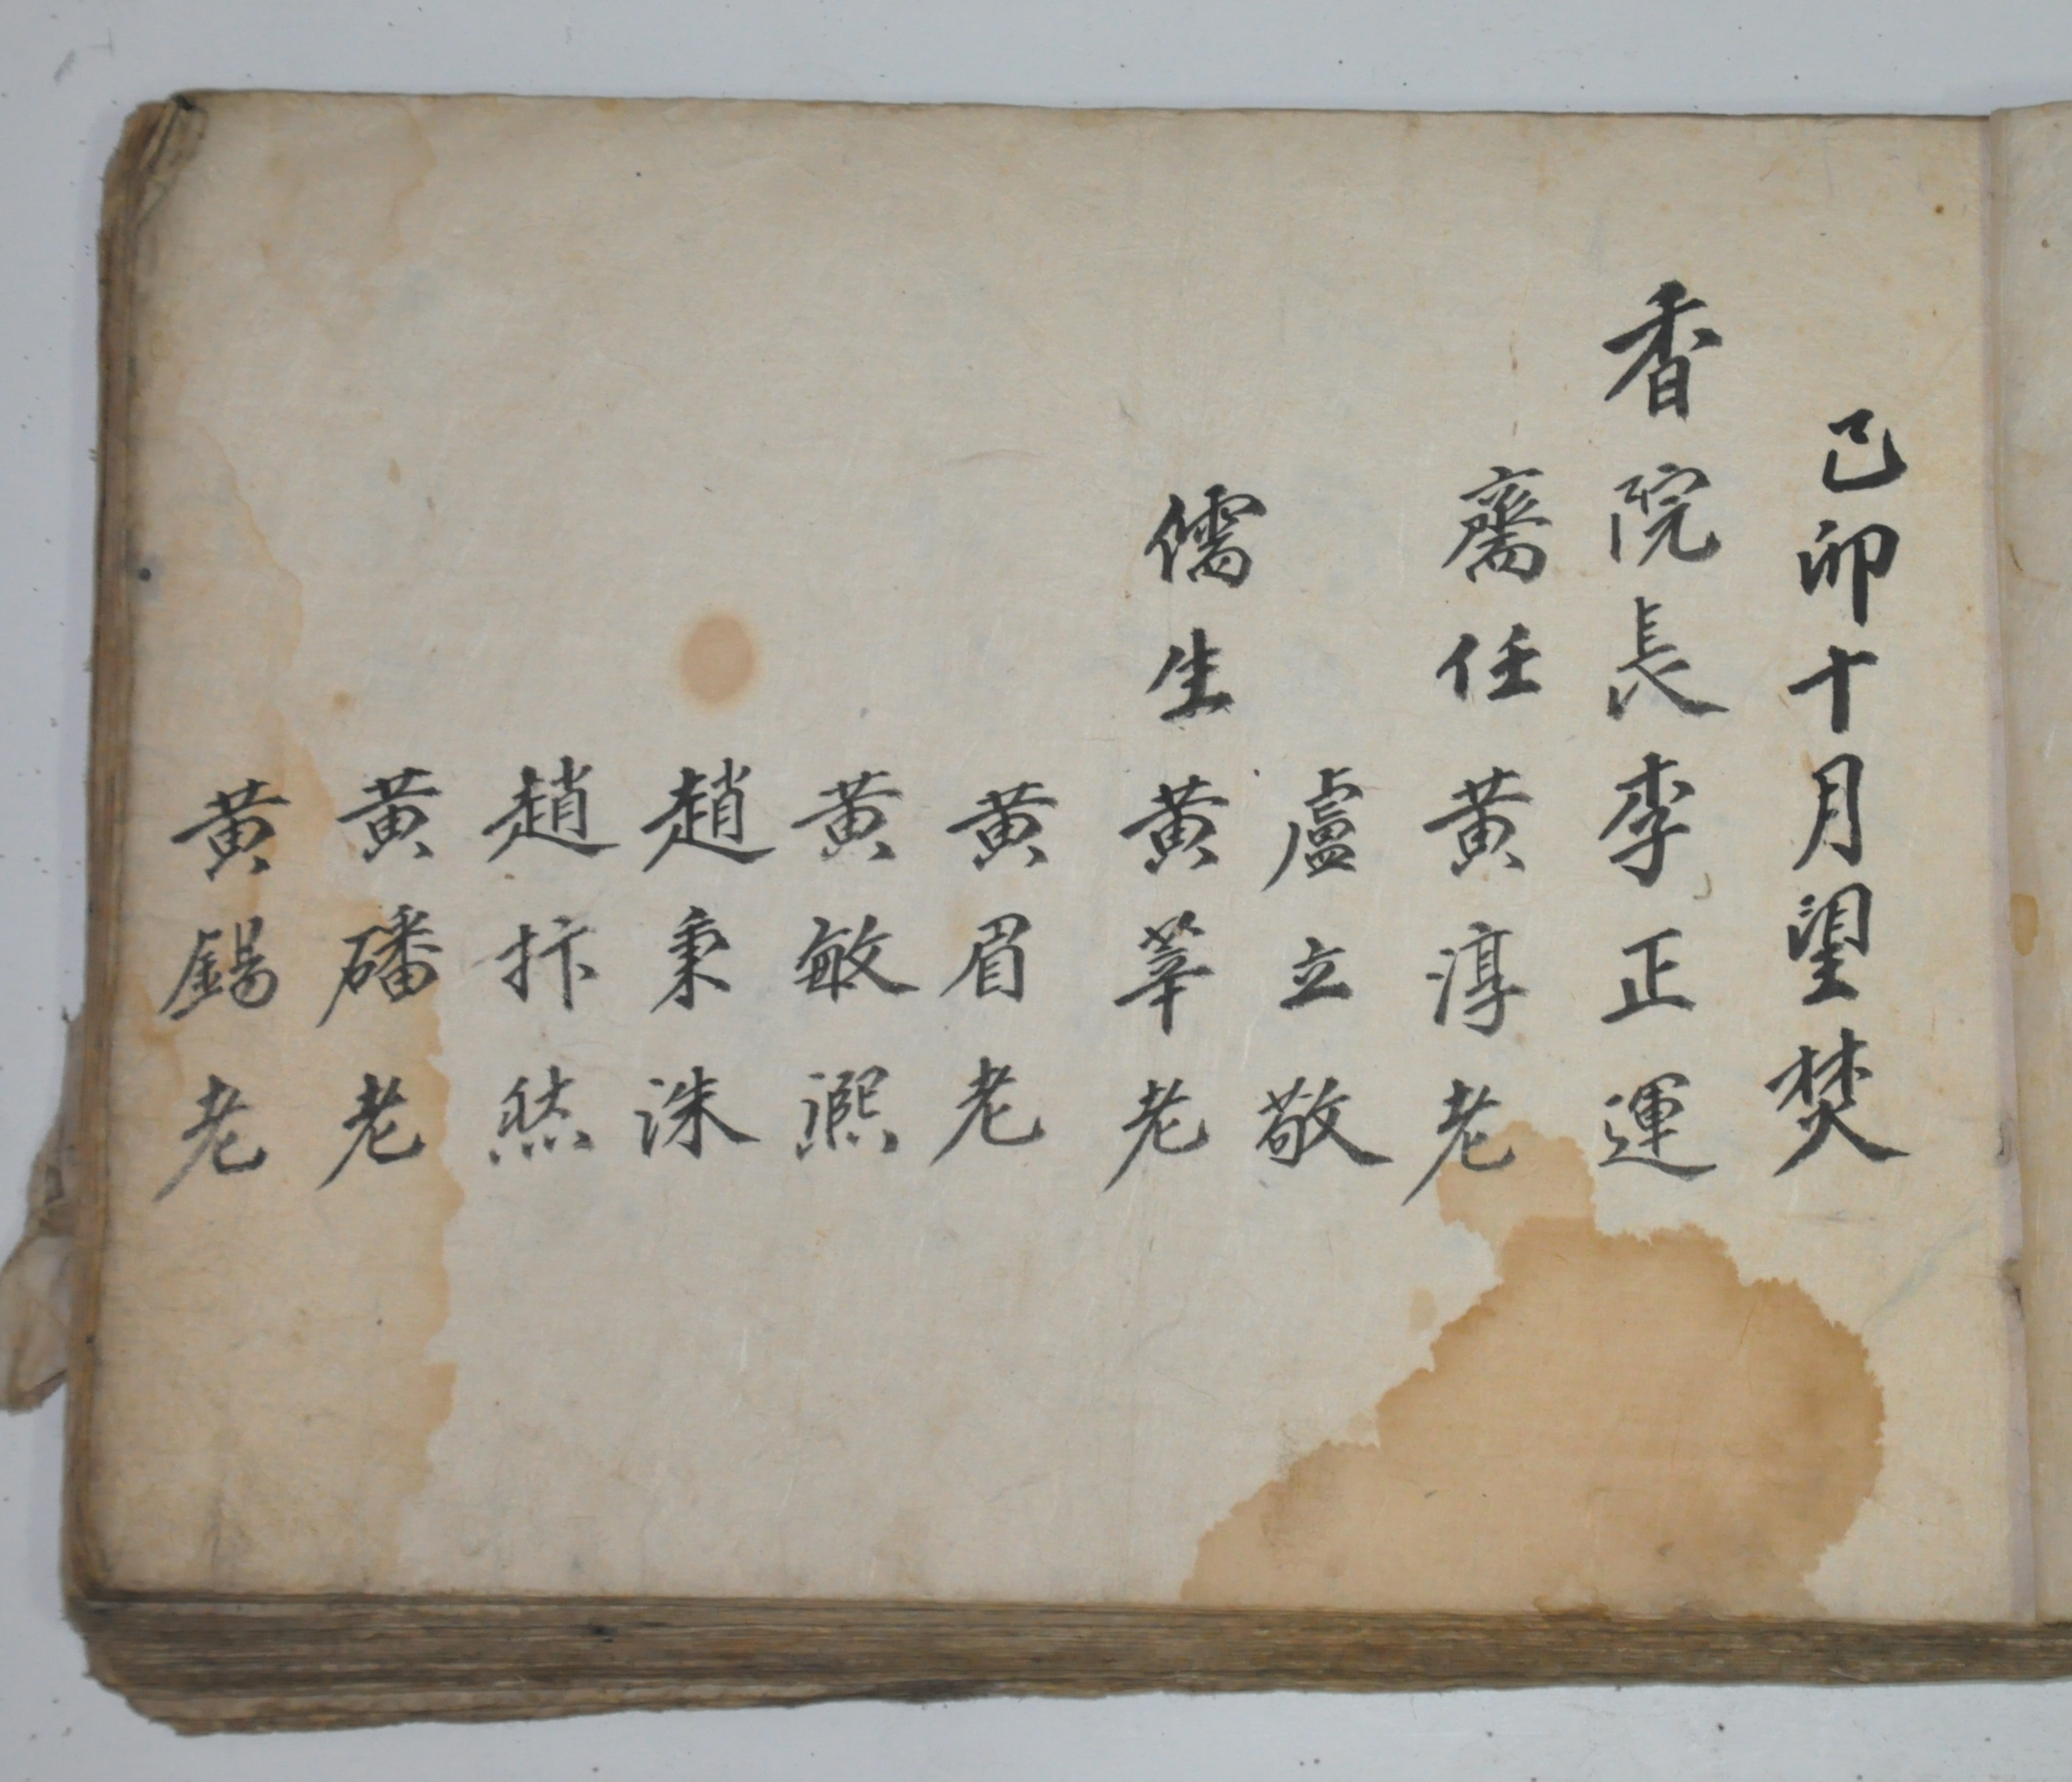 己卯十月望焚
香院長李正運
齋任黃淳老
盧立敬
儒生黃莘老
黃眉老
黃敏熙
趙秉洙
趙抃然
黃磻老
黃錫老